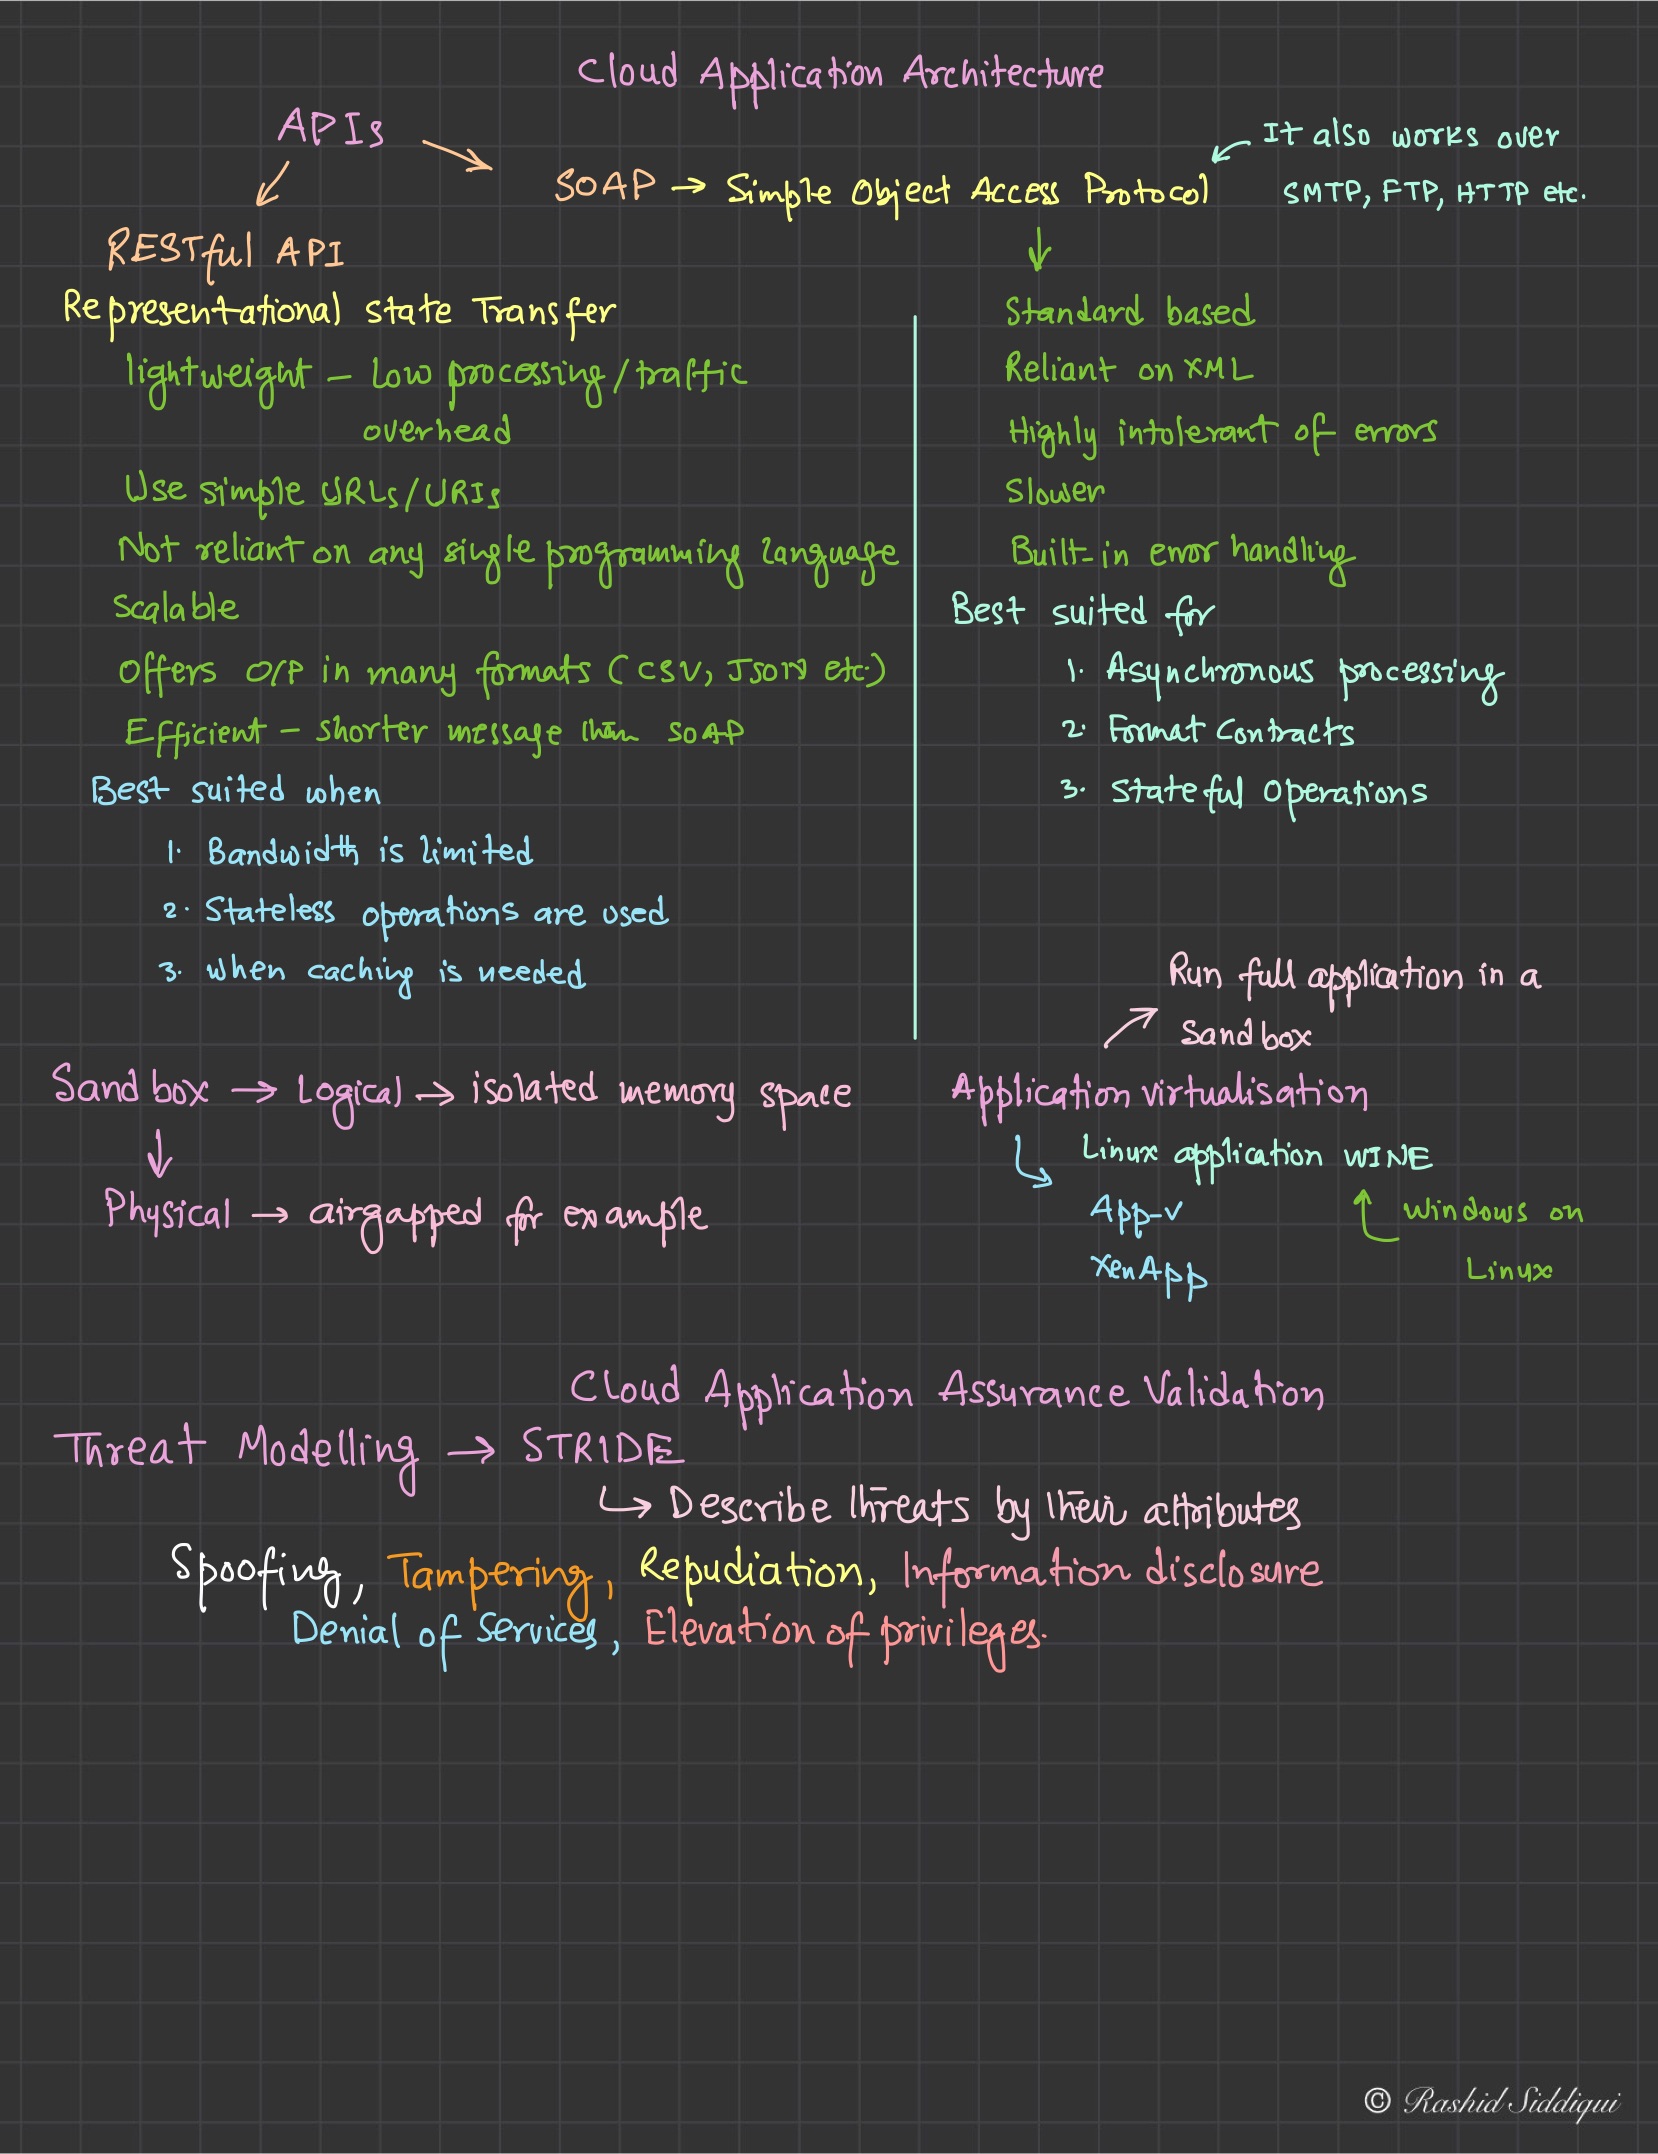 Cloud Application Architecture
APIs
It also works over
SMTP, FTP, HTTP etc.
SOAP → Simple Object Access Protocol
RESTful API
Representational state Transfer
lightweight – Low processing/traffic
overhead
Use simple URLs/URIs
Not reliant on any single programming language
Scalable
Offers O/P in many formats (CSV, JSON etc.)
Efficient – shorter message than SOAP
Best suited when
1. Bandwidth is limited
2. Stateless operations are used
3. When caching is needed
Standard based
Reliant on XML
Highly intolerant of errors
Slower
Built-in error handling
Best suited for
1. Asynchronous processing
2. Format Contracts
3. Stateful Operations
Sandbox → Logical → isolated memory space
Physical → airgapped for example
Run full application in a
Sandbox
Application virtualisation
Linux application WINE
App-v
XenApp
Windows on
Linux
Cloud Application Assurance Validation
Threat Modelling → STRIDE
↳ Describe threats by their attributes
Spoofing, Tampering, Repudiation, Information disclosure
Denial of Services, Elevation of privileges.
© Rashid Siddiqui